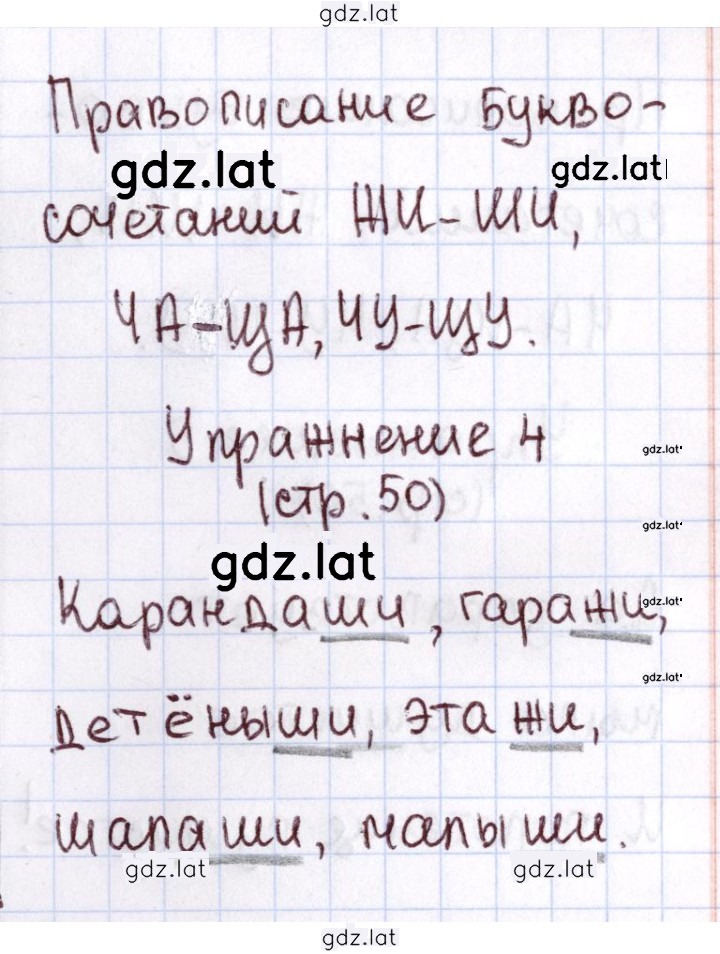 gdz.lat
Правописание букво-
gdz.lat gdz.lat
сочетаний ЖИ-ШИ,
ЧА-ЩА, ЧУ-ЩУ.
Упражнение 4
gdz.lat
(стр. 50)
gdz.lat
gdz.lat
Карандаши, гаражи,
gdz.lat
gdz.lat
детёныши, этажи,
шалаши, малыши.
gdz.lat gdz.lat
gdz.lat